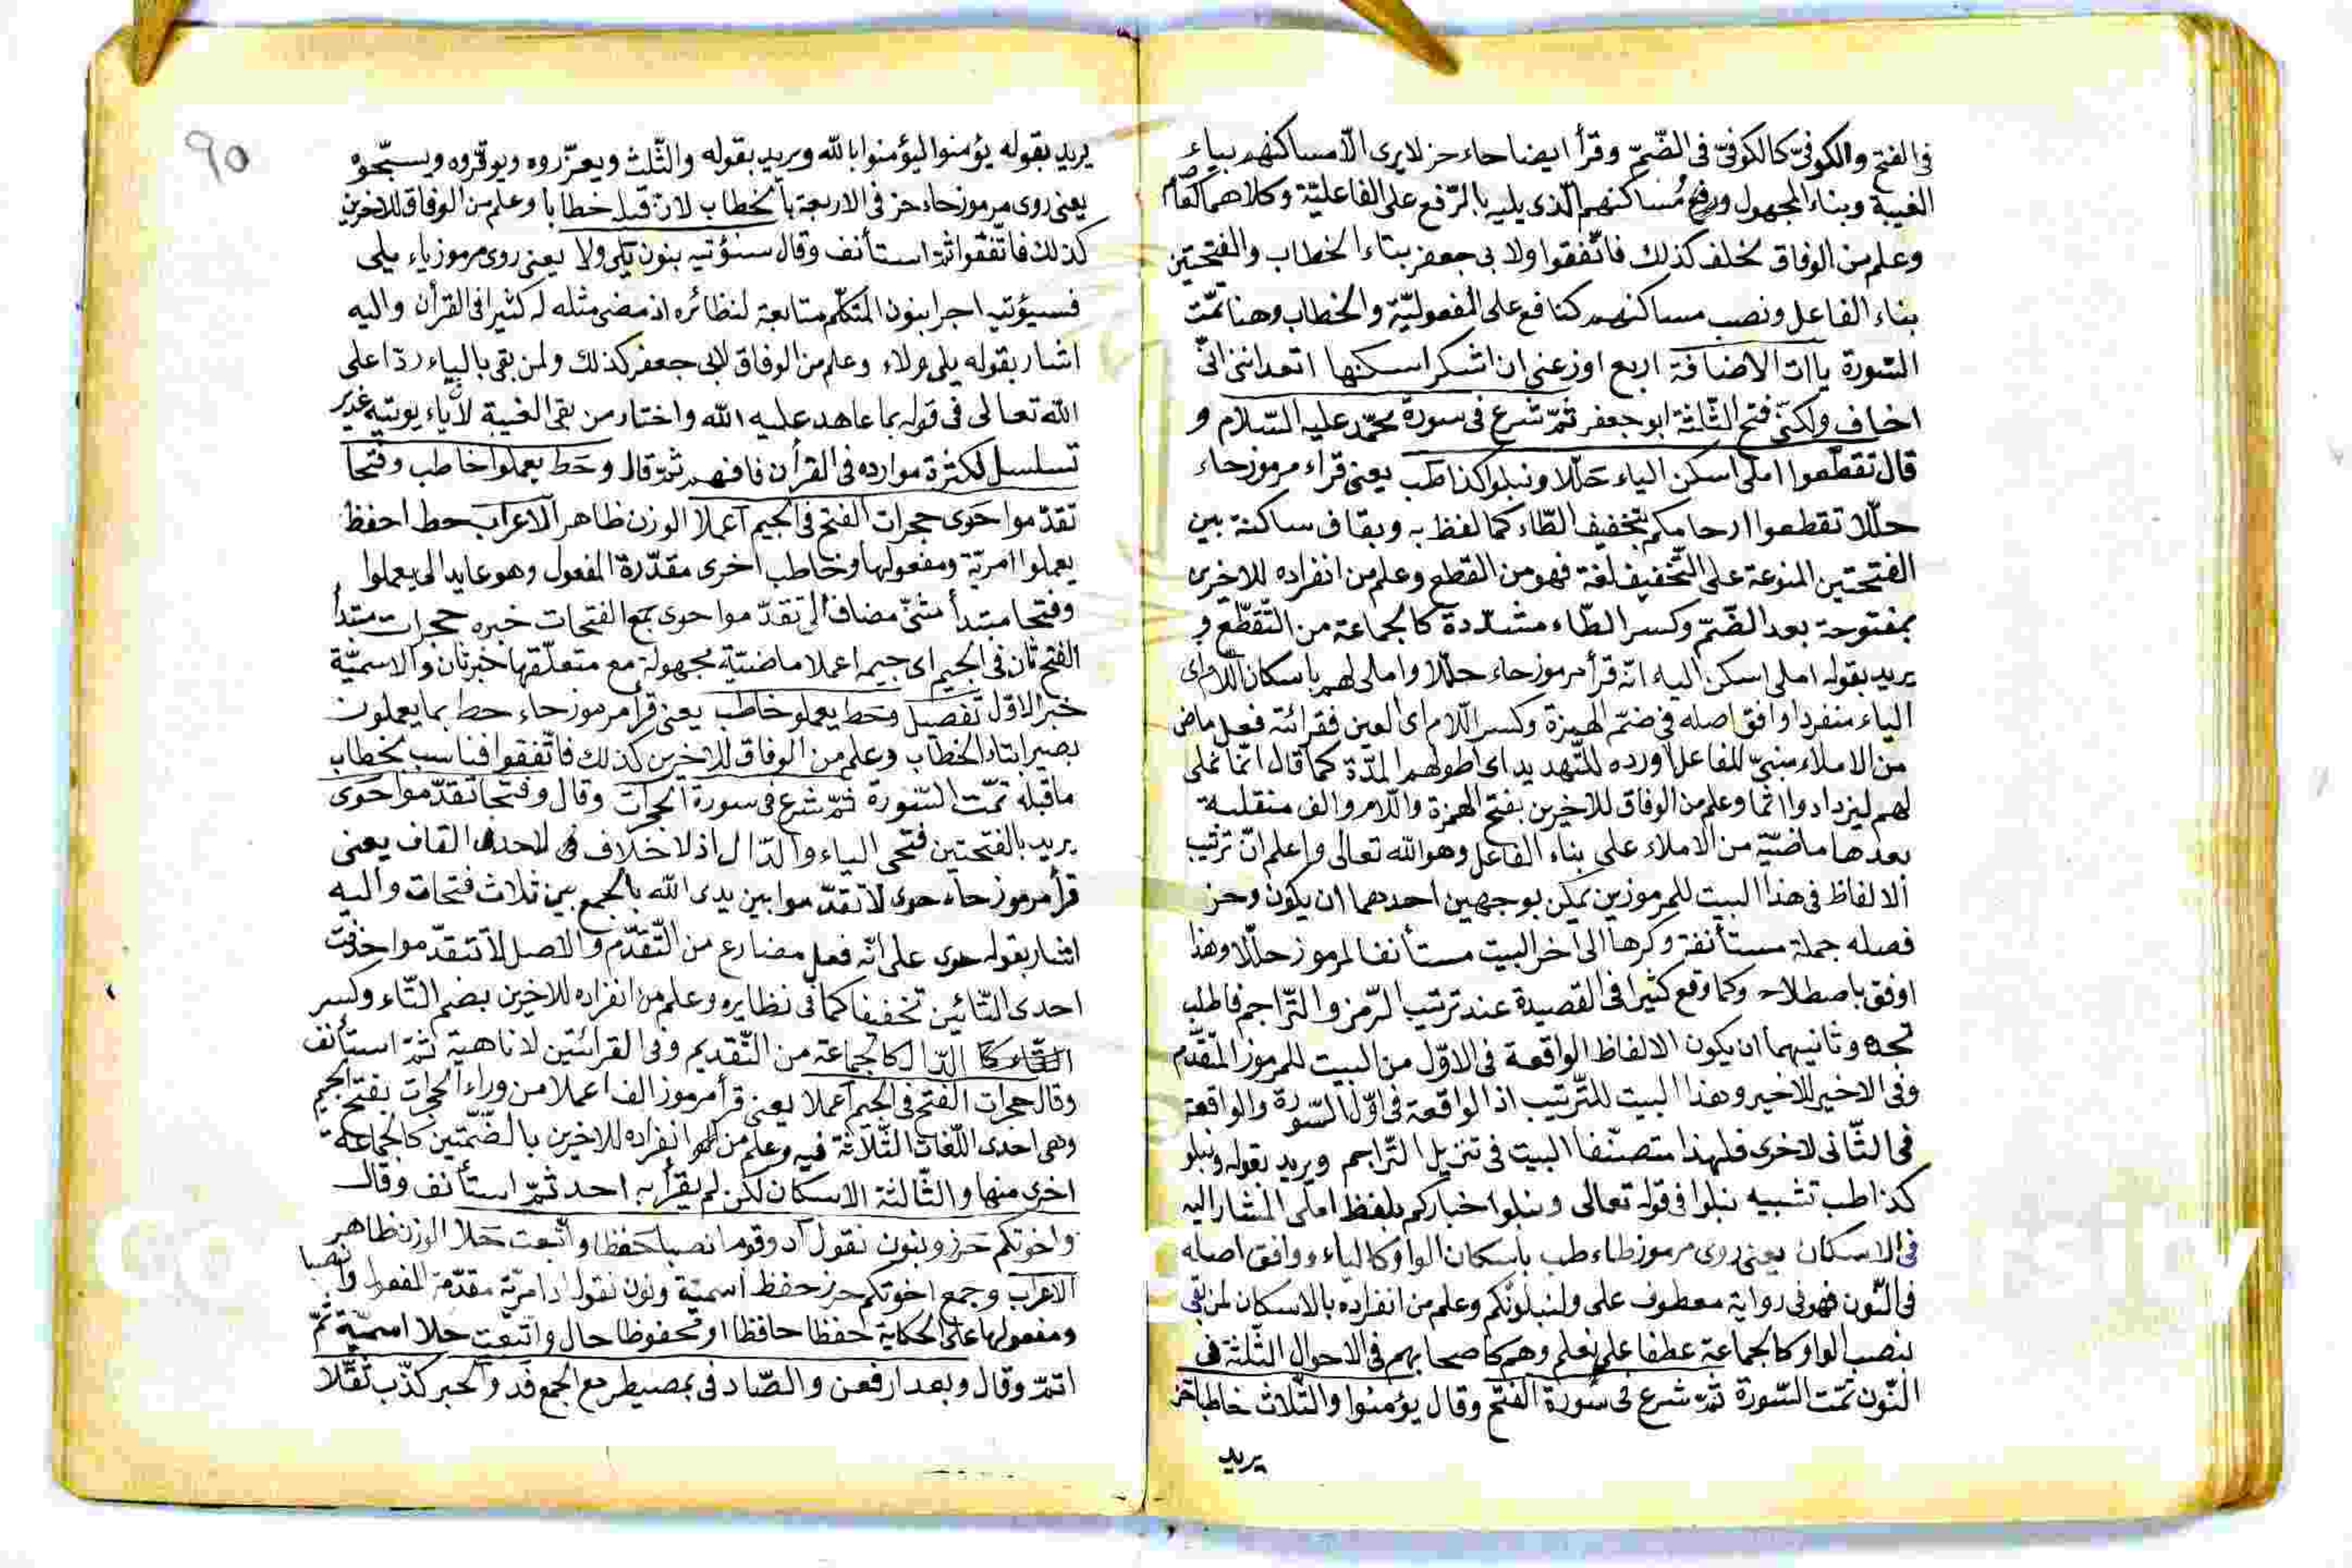 فى الفتح والكوفىّ كالكوفىّ فى الضّمّ وقرأ ايضا حاء حز لا يرى الّا مساكنهم بياء
الغيبة وبناء المجهول ورفع مساكنهم الّذى يليه بالرّفع على الفاعليّة وكلاهما كعاصم
وعلم من الوفاق لخلف كذلك فاتّفقوا ولابى جعفر بتاء الخطاب والفتحتين
بناء الفاعل ونصب مساكنهم كنافع على المفعوليّة والخطاب وهنا تمّت
السّورة ياات الاضافة اربع اوزعنى ان اشكر اسكنها اتعداننى انّى
اخاف ولكنّى فتح الثّلثة ابو جعفر ثمّ شرع فى سورة محمّد عليه السّلام و
قال تقطّعوا املى اسكن الياء حلّلا ونبلو كذا طب يعنى قراء مرموز حاء
حلّلا تقطعوا ارحامكم بتخفيف الطّاء كما لفظ به وبقاف ساكنة بين
الفتحتين المنوعة على التّخفيف لغة فهو من القطع وعلم من انفراده للاخرى
بمفتوحة بعد الضّمّ وكسر الطّاء مشدّدة كالجماعة من التّقطّع و
يريد بقوله املى اسكن الياء انّه قرأ مرموز حاء حلّلا واملى لهم باسكان اللّام اى
الياء منفردا وافق اصله فى ضمّ الهمزة وكسر اللّام اى العين فقرائته فعل ماض
من الاملاء مبنىّ للفاعل اورده للتّهديد اى اطولهم المدّة كما قال انّما نملى
لهم ليزدادوا اثما وعلم من الوفاق للاخرين بفتح الهمزة واللّام والف منقلبة
بعدها ماضيّة من الاملاء على بناء الفاعل وهو الله تعالى واعلم انّ ترتيب
الالفاظ فى هذا البيت للمرموزين يمكن بوجهين احدهما ان يكون وحز
فصله جملة مستأنفة وكرها الى آخر البيت مستأنفا لمرموز حلّلا وهذا
اوفق باصطلاحه وكما وقع كثيرا فى القصيدة عند ترتيب الرّمز والتّراجم فاطلب
تجده وثانيهما ان يكون الالفاظ الواقعة فى الاوّل من البيت للمرموز المتقدّم
وفى الاخير للاخير وهذا البيت للتّرتيب اذ الواقعة فى اوّل السّورة والواقعة
فى الثّانى لاخرى فلهذا متصنّفا البيت فى تنزيل التّراجم ويريد بقوله ونبلو
كذا طب تشبيه نبلوا فى قوله تعالى ونبلوا خباركم بلفظ املى المشار اليه
فى الاسكان يعنى روى مرموز طاء طب باسكان الواو كالياء ووافق اصله
فى النّون فهو فى رواية معطوف على ولنبلونّكم وعلم من انفراده بالاسكان لمن بقى
بنصب الواو كالجماعة عطفا على نعلم وهم كاصحابهم فى الاحوال الثّلثة فى
النّون تمّت السّورة ثمّ شرع فى سورة الفتح وقال يؤمنوا والثّلاث خاطبا حز
يريد
٩٥
يريد بقوله يؤمنوا ليؤمنوا بالله ويريد بقوله والثّلث ويعزّروه ويوقّروه ويسبّحوه
يعنى روى مرموز حاء حز فى الاربعة بالخطاب لانّ قبله خطابا وعلم من الوفاق للاخرين
كذلك فاتّفقوا ثمّ استأنف وقال سنؤتيه بنون يلى ولا يعنى روى مرموز ياء يلى
فسيؤتيه اجرا بنون المتكلّم متابعة لنظائره اذ مضى مثله له كثيرا فى القرأن واليه
اشار بقوله يلى ولاء وعلم من الوفاق لابى جعفر كذلك ولمن بقى بالياء ردّا على
الله تعالى فى قوله بما عاهد عليه الله واختار من بقى الغيبة لأنّ ياء يوتيه غدير
تسلسل لكثرة موارده فى القرأن فافهم ثمّ قال وحط يعملوا خاطب وفتحا
تقدّموا حوى حجرات الفتح فى الجيم اعملا الوزن ظاهر الاعراب حط احفظ
يعملوا امريّة ومفعولها وخاطب اخرى مقدّرة المفعول وهو عايد الى يعملوا
وفتحا مبتدأ مثنّى مضاف الى تقدّموا حوى جمع الفتحات خبره حجرات مبتدأ
الفتح ثان فى الجيم اى جيمه اعملا ماضيّة مجهولة مع متعلّقها خبر ثان والاسميّة
خبر الاوّل تفصيل وحط يعملوا خاطب يعنى قرأ مرموز حاء حط بما يعملون
بصير بتاء الخطاب وعلم من الوفاق للاخرين كذلك فاتّفقوا فناسب بخطاب
ما قبله تمّت السّورة ثمّ شرع فى سورة الحجرات وقال وفتحا تقدّموا حوى
يريد بالفتحتين فتحى الياء والدّال اذ لا خلاف فى لاحدى القاف يعنى
قرأ مرموز حاء حوى لا تقدّموا بين يدى الله بالجمع بين ثلاث فتحات واليه
اشار بقوله حوى على انّه فعل مضارع من التّقدّم والاصل لا تتقدّموا حذفت
احدى التّائين تخفيفا كما فى نظايره وعلم من انفراده للاخرين بضم التّاء وكسر
الدّال كالجماعة من التّقديم وفى القرائتين لا ناهية ثمّ استأنف
وقال حجرات الفتح فى الجيم اعملا يعنى قرأ مرموز الف اعملا من وراء الحجرات بفتح الجيم
وهى احدى اللّغات الثّلاثة فيه وعلم من انفراده للاخرين بالضّمّتين كالجماعة
اخرى منها والثّالثة الاسكان لكن لم يقرأ به احد ثمّ استأنف وقال
واخوتكم حرز ونون نقول اد وقوما نصبا حفظا واتّبعت حلا الوزن ظاهر
الاعراب وجمع اخوتكم حرز حفظ اسميّة ونون نقول اد امريّة مقدّمة المفعول ونصبا
ومفعولها على الحكاية حفظا حافظا او محفوظا حال واتّبعت حلا اسميّة ثمّ
اتمّ وقال وبعد ارفعن والصّاد فى بمصيطر مع الجمع فد والحبر كذّب ثقّلا